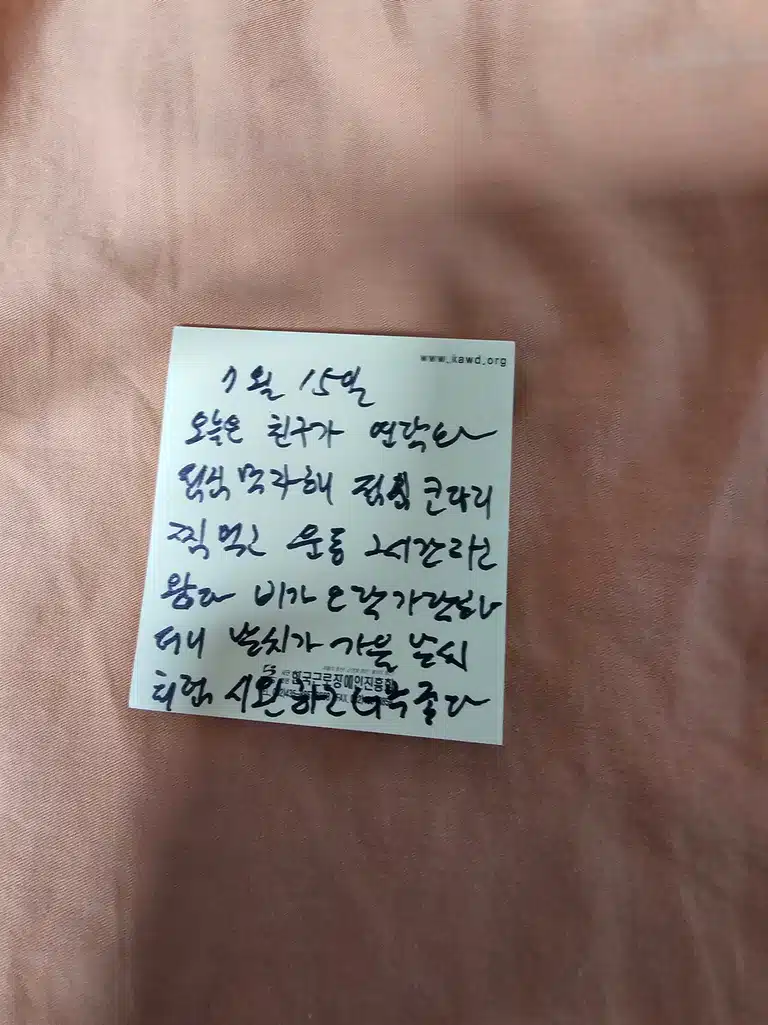 www.kawd.org
7월 15일
오늘은 친구가 연락와
점심 먹자해 점심 코다리
찜 먹고 운동 2시간하고
왔다 비가 오락가락하
더니 날씨가 가을 날씨
처럼 시원하고 너무 좋다
한국근로장애인진흥회